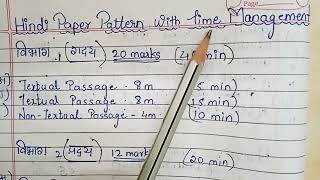 Page
Hindi Paper Pattern with Time Management
विभाग 1 (गद्य) 20 marks (4 min)
Textual Passage - 8m 5 min)
Textual Passage - 8m (15 min)
Non-Textual Passage - 4m (10 min)
विभाग 2 (पद्य) 12 marks (20 min)